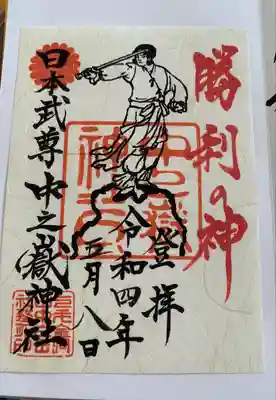 勝利の神
登拝
令和四年
五月八日
日本武尊 中之嶽神社